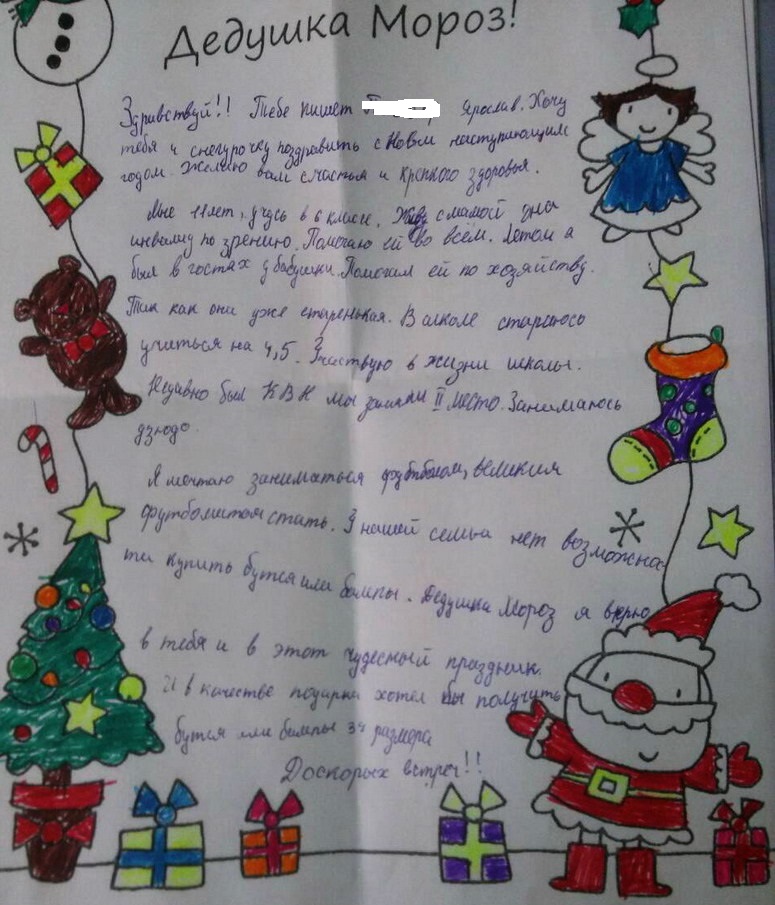 Дедушка Мороз!
Здравствуй!! Тебе пишет П Ярослав. Хочу
тебя и снегурочку поздравить с новым наступающим
годом. Желаю вам счастья и крепкого здоровья.
Мне 11 лет, учусь в 6 классе. Живу с мамой она
инвалид по зрению. Помогаю ей во всём. Летом я
был в гостях у бабушки. Помогал ей по хозяйству.
Так как они уже старенькая. В школе стараюсь
учиться на 4,5. Участвую в жизни школы.
Недавно был КВН мы заняли II место. Занимаюсь
дзюдо.
Я мечтаю заниматься футболом, великим
футболистом стать. У нашей семьи нет возможна-
ти купить бутся или бампы. Дедушка Мороз я верю
в тебя и в этот чудесный праздник.
И в качестве подарка хотел бы получить
бутся или бампы 34 размера
Доскорых встреч!!